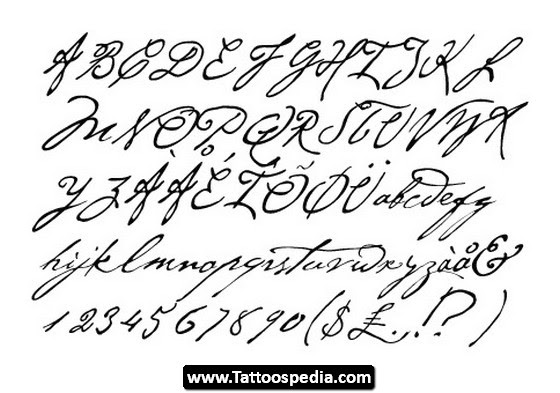 A B C D E F G H I J K L
M N O P Q R S T U V W X
Y Z À Å É Î Õ Ø Ü a b c d e f g
h i j k l m n o p q r s t u v w x y z à å &
1 2 3 4 5 6 7 8 9 0 ( $ £ . , ! ? )
www.Tattoospedia.com